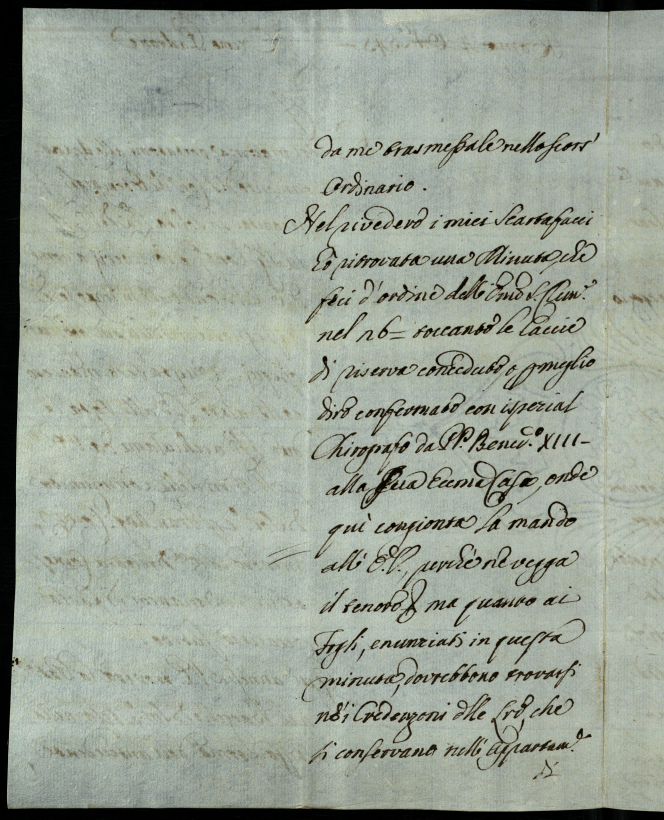 da me trasmessale nello scors'
Ordinario.
Nel rivedere i miei Scartafacci
hò ritrovata una Minuta, che
feci d'ordine dell'Emo S. Clem.e
nel 26= toccante le Caccie
di riserva concedute, o p meglio
dire confermate con ispezial
Chirografo da PP. Bened.o XIII-
alla Sua Eccma Casa, onde
quì congionta la mando
all' E.V., perche ne vegga
il tenore; ma quanto ai
Fogli, enunciati in questa
minuta, dovrebbono trovarsi
nei Credenzoni dlle, che
si conservano nell' Appartam.o